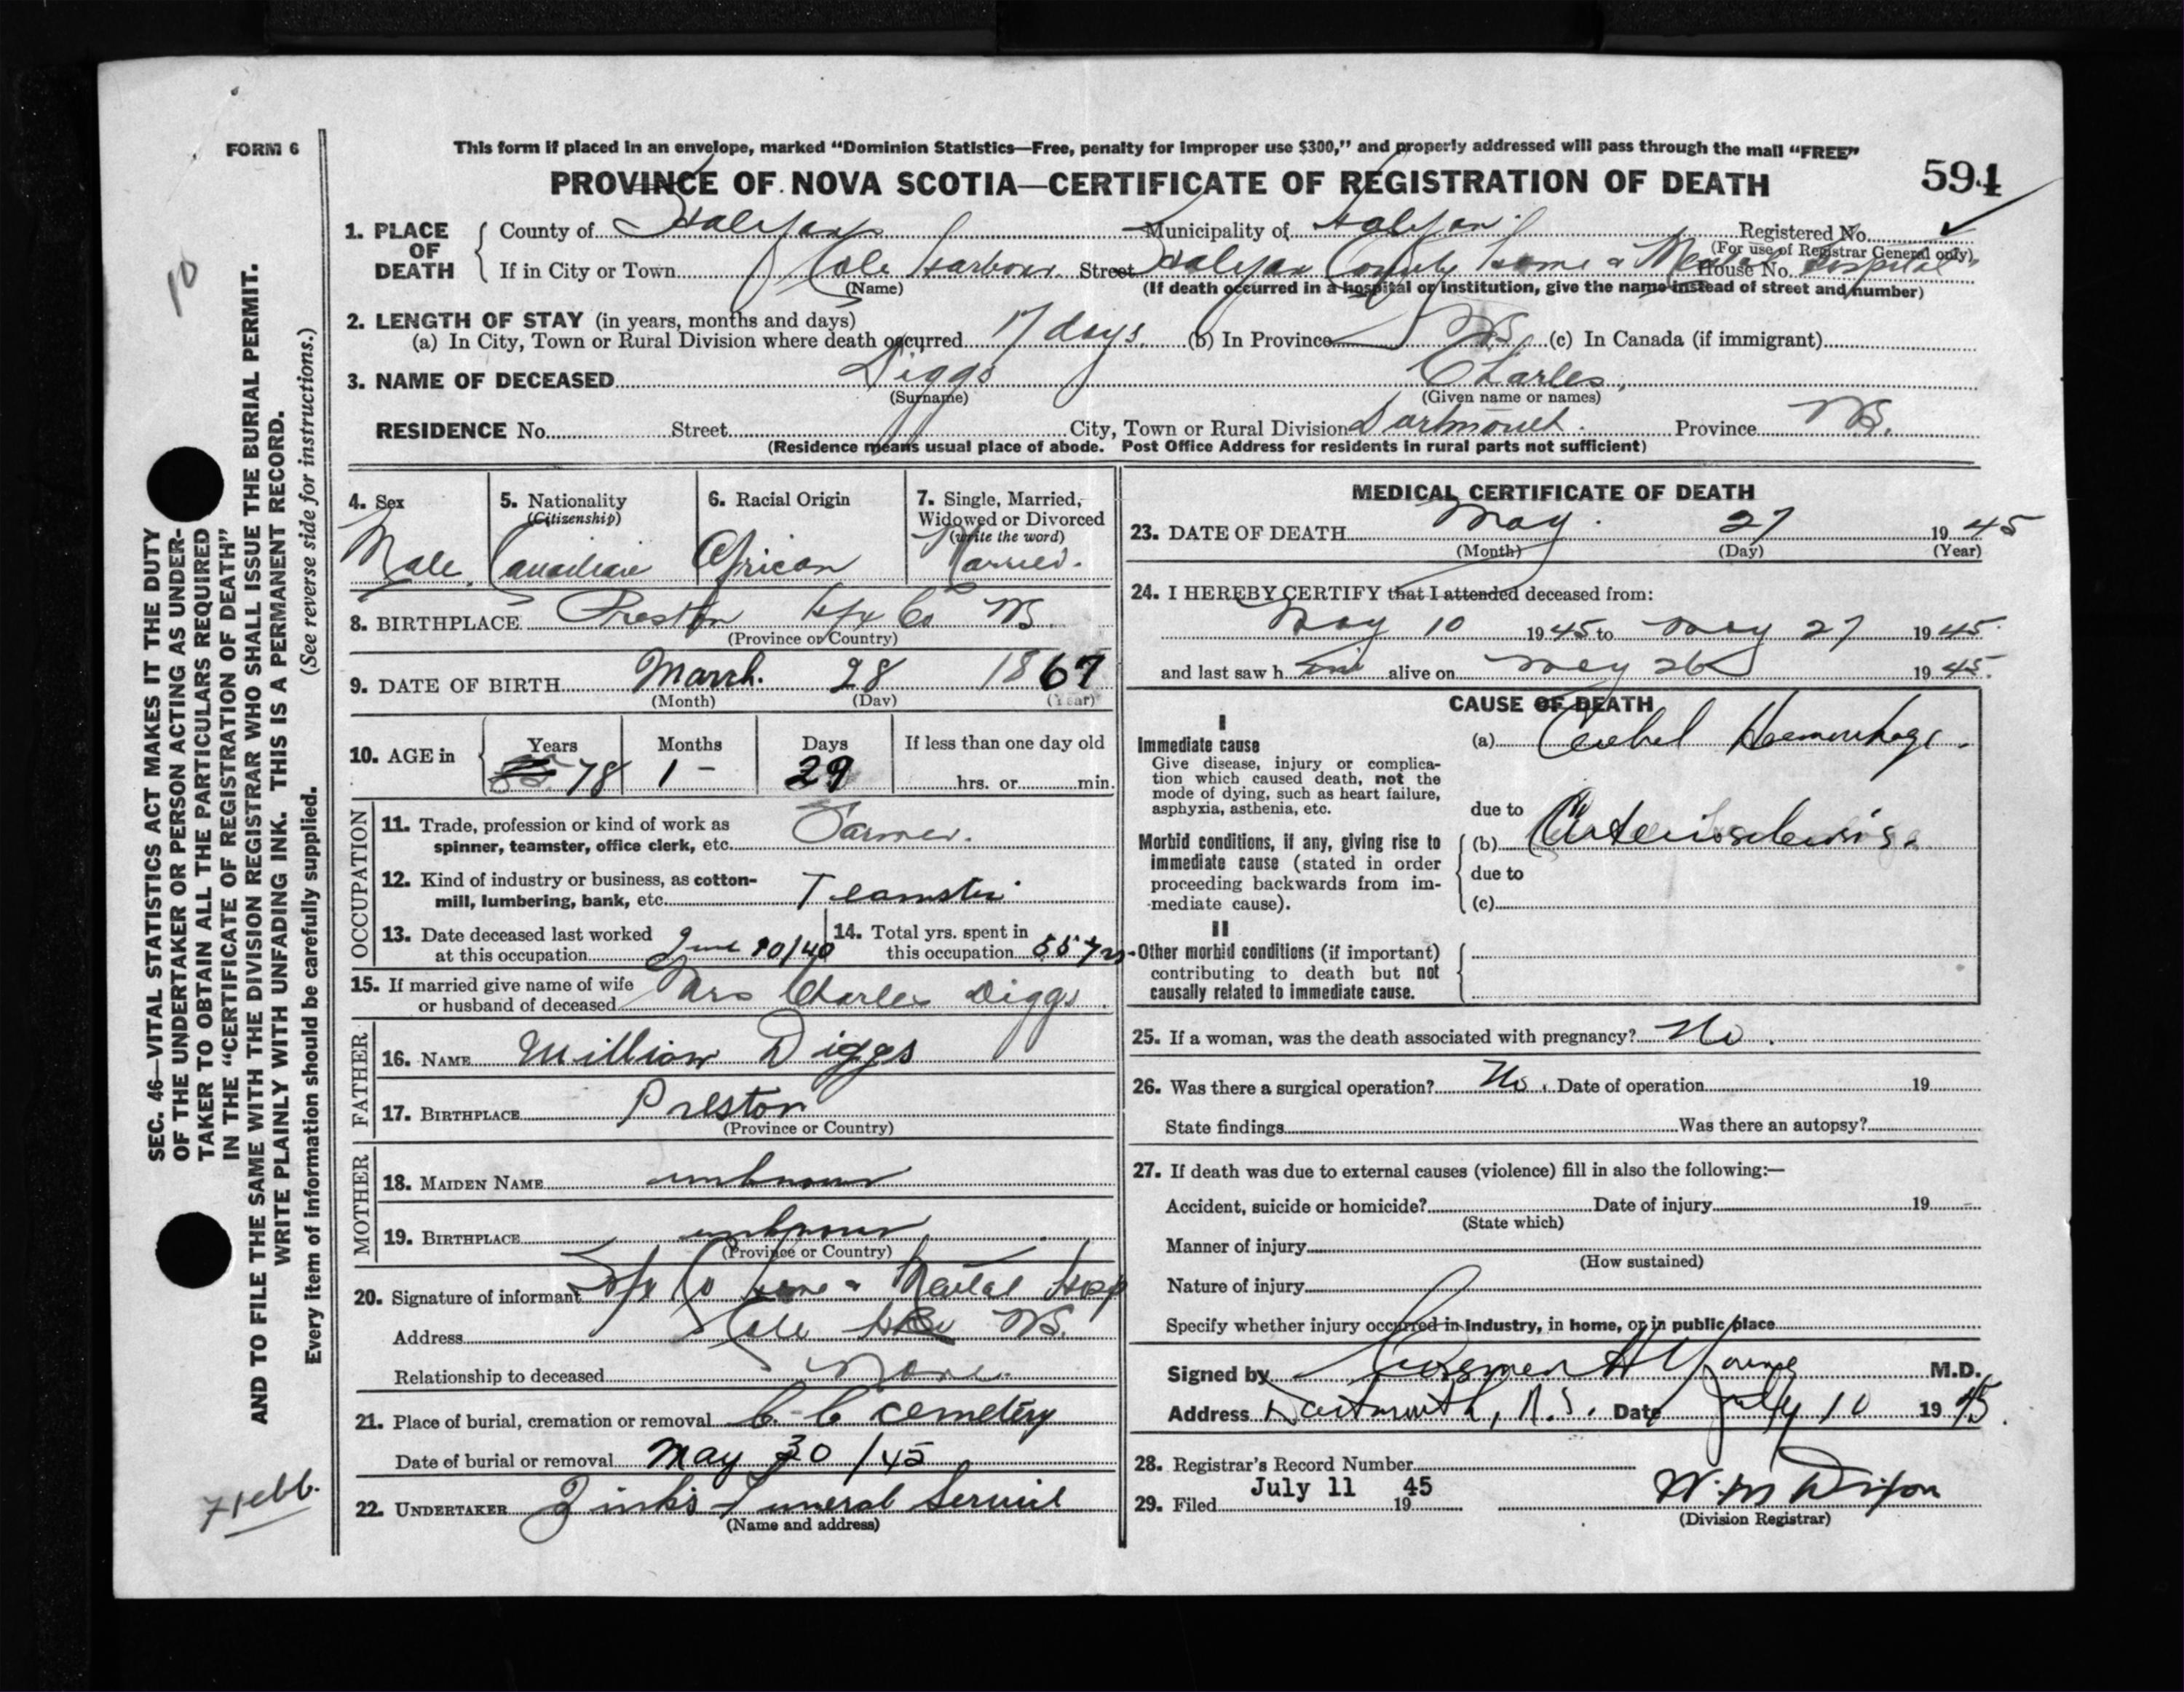 FORM 6
This form if placed in an envelope, marked "Dominion Statistics—Free, penalty for improper use $300," and properly addressed will pass through the mail "FREE"
PROVINCE OF NOVA SCOTIA—CERTIFICATE OF REGISTRATION OF DEATH
594
1. PLACE OF DEATH
County of Halifax Municipality of Halifax Registered No.
(For use of Registrar General only)
If in City or Town Cole Harbour Street Halifax County Home & Mental Hospital House No.
(Name) (If death occurred in a hospital or institution, give the name instead of street and number)
2. LENGTH OF STAY (in years, months and days)
(a) In City, Town or Rural Division where death occurred 17 days. (b) In Province NS (c) In Canada (if immigrant)
3. NAME OF DECEASED Diggs Charles
(Surname) (Given name or names)
RESIDENCE No. Street City, Town or Rural Division Dartmouth. Province NS.
(Residence means usual place of abode. Post Office Address for residents in rural parts not sufficient)
4. Sex
Male.
5. Nationality
(Citizenship)
Canadian
6. Racial Origin
African
7. Single, Married,
Widowed or Divorced
(write the word)
Married.
8. BIRTHPLACE Preston Hfx Co NS.
(Province or Country)
9. DATE OF BIRTH March. 28 1867
(Month) (Day) (Year)
10. AGE in
Years Months Days If less than one day old
78 1 – 29 hrs. or min.
OCCUPATION
11. Trade, profession or kind of work as
spinner, teamster, office clerk, etc. Farmer.
12. Kind of industry or business, as cotton-
mill, lumbering, bank, etc. Teamster
13. Date deceased last worked
at this occupation June 10/40
14. Total yrs. spent in
this occupation 55 yrs
15. If married give name of wife
or husband of deceased Mrs Charles Diggs.
FATHER
16. NAME William Diggs
17. BIRTHPLACE Preston
(Province or Country)
MOTHER
18. MAIDEN NAME unknown
19. BIRTHPLACE unknown
(Province or Country)
20. Signature of informant Hfx Co Home & Mental Hosp
Address Cole Hbr NS.
Relationship to deceased None.
21. Place of burial, cremation or removal C. C cemetery
Date of burial or removal May 30/45
22. UNDERTAKER Zink's Funeral Service
(Name and address)
MEDICAL CERTIFICATE OF DEATH
23. DATE OF DEATH May. 27 1945
(Month) (Day) (Year)
24. I HEREBY CERTIFY that I attended deceased from:
May 10 1945 to May 27 1945
and last saw him alive on May 26 1945.
CAUSE OF DEATH
I
Immediate cause
Give disease, injury or complica-
tion which caused death, not the
mode of dying, such as heart failure,
asphyxia, asthenia, etc.
(a) Cerebral Hemorrhage.
due to
Morbid conditions, if any, giving rise to
immediate cause (stated in order
proceeding backwards from im-
mediate cause).
(b) Arteriosclerosis.
due to
(c)
II
Other morbid conditions (if important)
contributing to death but not
causally related to immediate cause.
25. If a woman, was the death associated with pregnancy? No.
26. Was there a surgical operation? No. Date of operation 19
State findings Was there an autopsy?
27. If death was due to external causes (violence) fill in also the following:—
Accident, suicide or homicide? Date of injury 19
(State which)
Manner of injury
(How sustained)
Nature of injury
Specify whether injury occurred in industry, in home, or in public place
Signed by H Young M.D.
Address Dartmouth, N.S. Date July 10 1945.
28. Registrar's Record Number
29. Filed July 11 1945 W. M Dixon
(Division Registrar)
SEC. 46—VITAL STATISTICS ACT MAKES IT THE DUTY
OF THE UNDERTAKER OR PERSON ACTING AS UNDER-
TAKER TO OBTAIN ALL THE PARTICULARS REQUIRED
IN THE "CERTIFICATE OF REGISTRATION OF DEATH"
AND TO FILE THE SAME WITH THE DIVISION REGISTRAR WHO SHALL ISSUE THE BURIAL PERMIT.
WRITE PLAINLY WITH UNFADING INK. THIS IS A PERMANENT RECORD.
Every item of information should be carefully supplied. (See reverse side for instructions.)
10